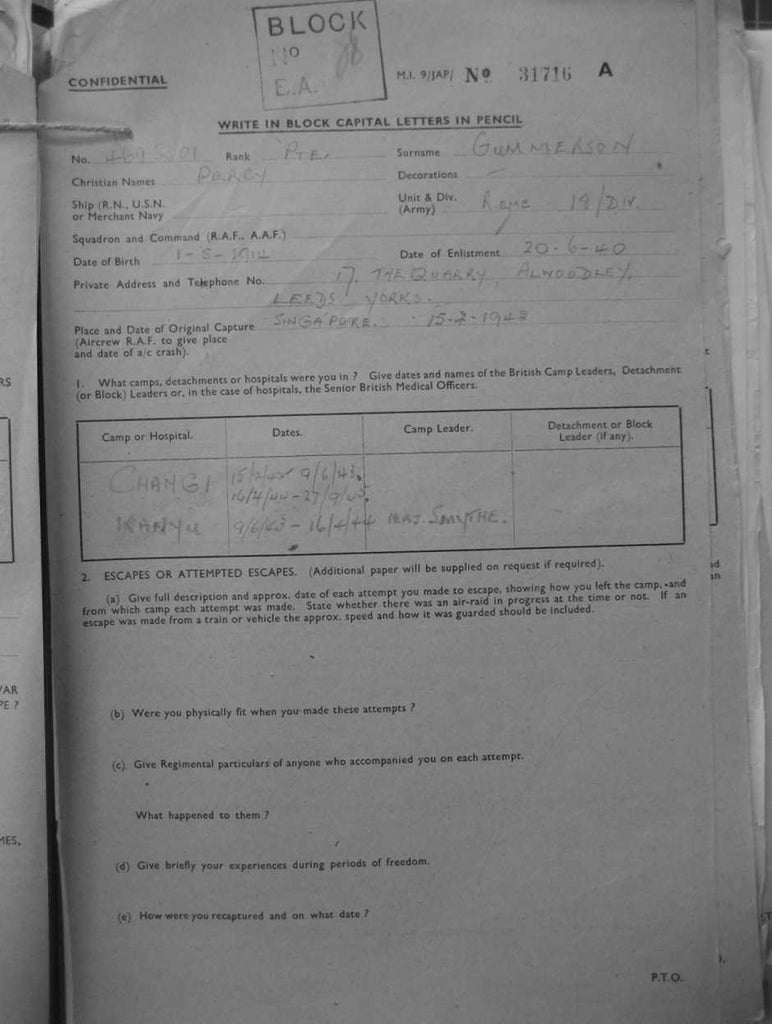 BLOCK
No
E.A.
CONFIDENTIAL
M.I. 9/JAP/ No 31716 A
WRITE IN BLOCK CAPITAL LETTERS IN PENCIL
No. Rank PTE. Surname GUMMERSON
Christian Names PERCY Decorations
Ship (R.N., U.S.N. or Merchant Navy
Unit & Div. (Army) REME 18/DIV.
Squadron and Command (R.A.F., A.A.F.)
Date of Birth 1-5-1914 Date of Enlistment 20-6-40
Private Address and Telephone No. 17, THE QUARRY, ALWOODLEY,
LEEDS YORKS.
Place and Date of Original Capture SINGAPORE. 15-2-1942
(Aircrew R.A.F. to give place
and date of a/c crash).
1. What camps, detachments or hospitals were you in ? Give dates and names of the British Camp Leaders, Detachment
(or Block) Leaders or, in the case of hospitals, the Senior British Medical Officers.
Camp or Hospital. Dates. Camp Leader. Detachment or Block
Leader (if any).
CHANGI 15/2/42 9/6/43.
16/4/44-27/9/
KANYU 9/6/43 - 16/4/44 MAJ. SMYTHE.
2. ESCAPES OR ATTEMPTED ESCAPES. (Additional paper will be supplied on request if required).
(a) Give full description and approx. date of each attempt you made to escape, showing how you left the camp, and
from which camp each attempt was made. State whether there was an air-raid in progress at the time or not. If an
escape was made from a train or vehicle the approx. speed and how it was guarded should be included.
(b) Were you physically fit when you made these attempts ?
(c) Give Regimental particulars of anyone who accompanied you on each attempt.
What happened to them ?
(d) Give briefly your experiences during periods of freedom.
(e) How were you recaptured and on what date ?
P.T.O.